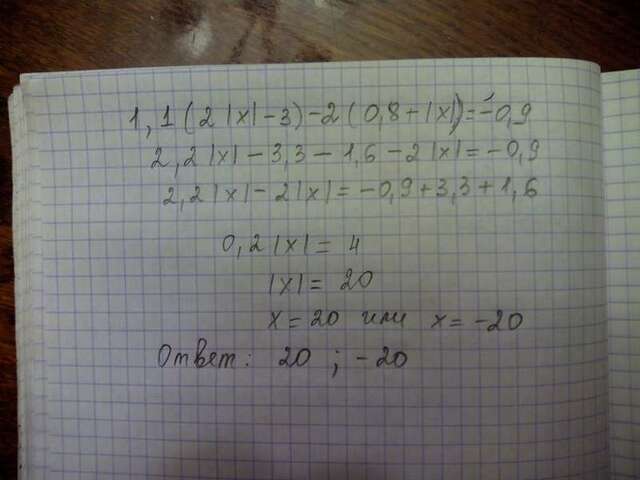 1,1(2|x|-3)-2(0,8+|x|)=-0,9
2,2|x|-3,3-1,6-2|x|=-0,9
2,2|x|-2|x|=-0,9+3,3+1,6
0,2|x|=4
|x|=20
x=20 или x=-20
Ответ: 20 ; -20